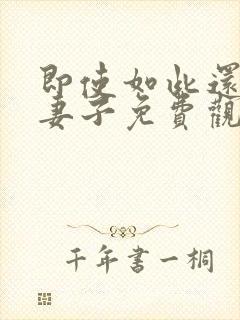 即使如此還
妻子免費觀
千年書一桐